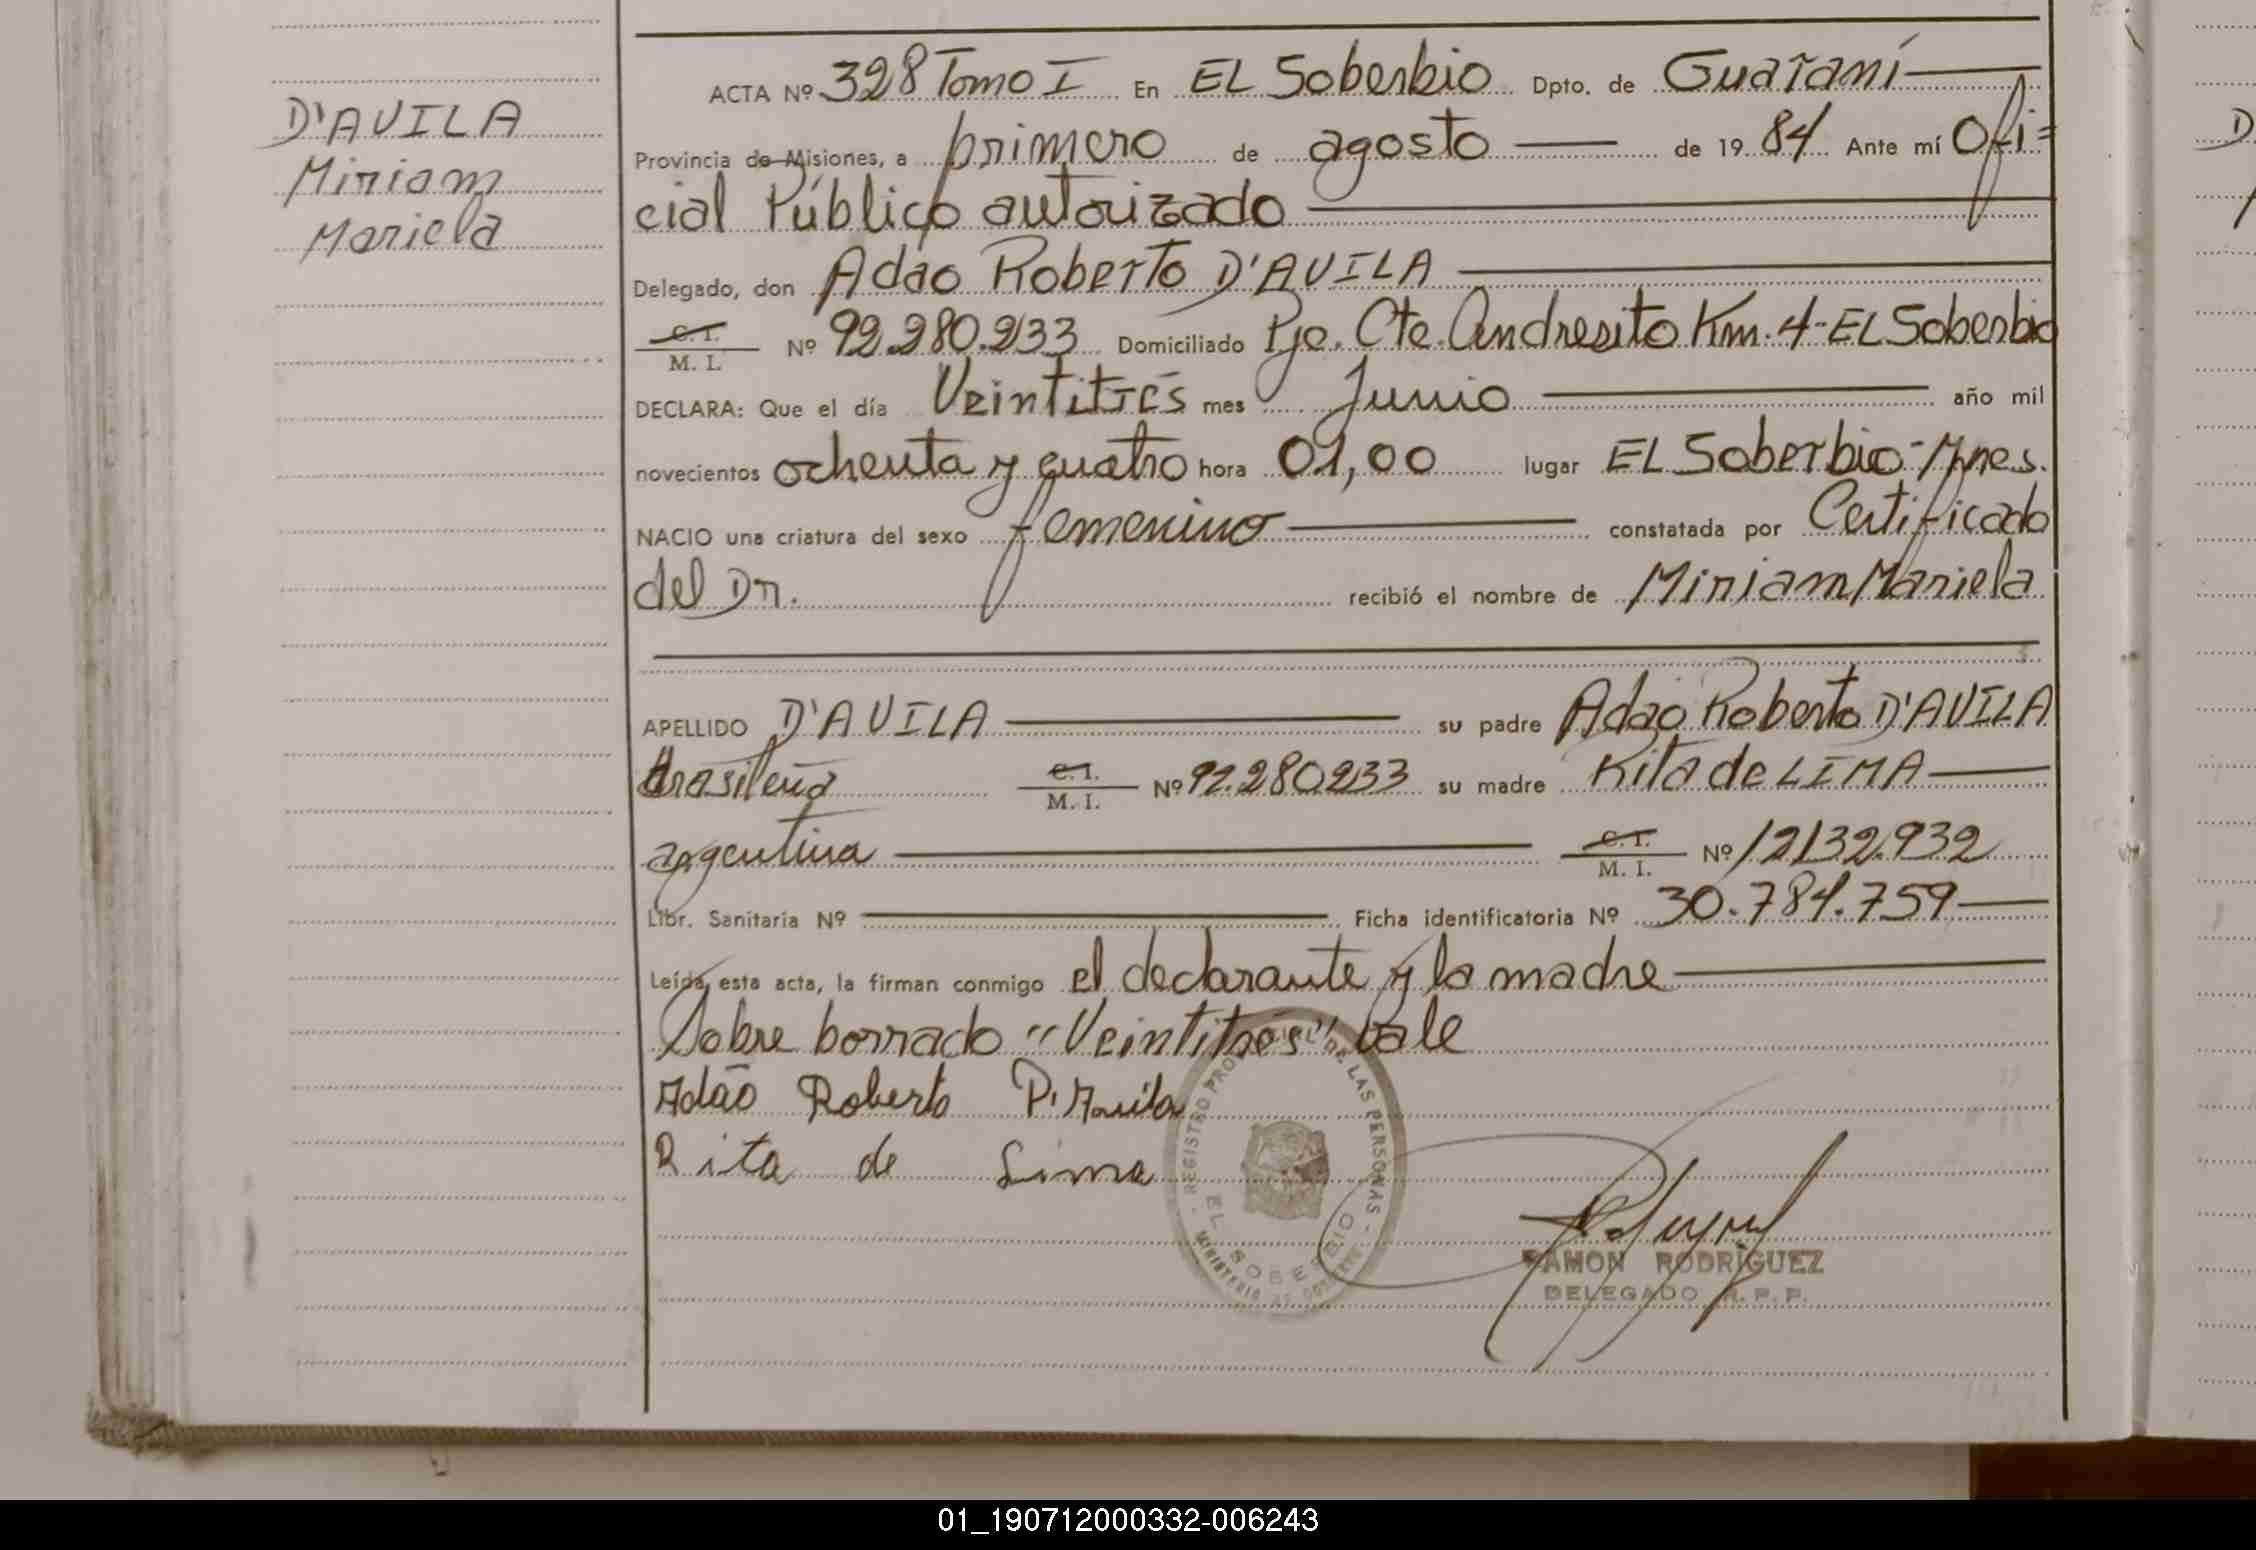 D'AVILA
Miriam
Mariela
ACTA Nº 328 Tomo I En EL Soberbio Dpto. de Guaraní
Provincia de Misiones, a primero de agosto de 1984 Ante mí Ofi=
cial Público autorizado
Delegado, don Adao Roberto D'AVILA
C. I.
M. I. Nº 92.280.233 Domiciliado Pje. Cte. Andresito Km. 4 - EL Soberbio
DECLARA: Que el día Veintitrés mes Junio año mil
novecientos ochenta y cuatro hora 01,00 lugar EL Soberbio - Mnes.
NACIO una criatura del sexo femenino constatada por Certificado
del Dr. recibió el nombre de Miriam Mariela
APELLIDO D'AVILA su padre Adao Roberto D'AVILA
brasileña C. I. M. I. Nº 92.280233 su madre Rita de LIMA
argentina C. I. M. I. Nº 12132.932
Libr. Sanitaria Nº Ficha identificatoria Nº 30.784.759
Leída esta acta, la firman conmigo el declarante y la madre
Sobre borrado "Veintitrés" vale
Adão Roberto D'Avila
Rita de Lima
REGISTRO PROVINCIAL DE LAS PERSONAS
EL SOBERBIO
MINISTERIO DE GOBIERNO
RAMON RODRIGUEZ
DELEGADO R. P. P.
01_190712000332-006243